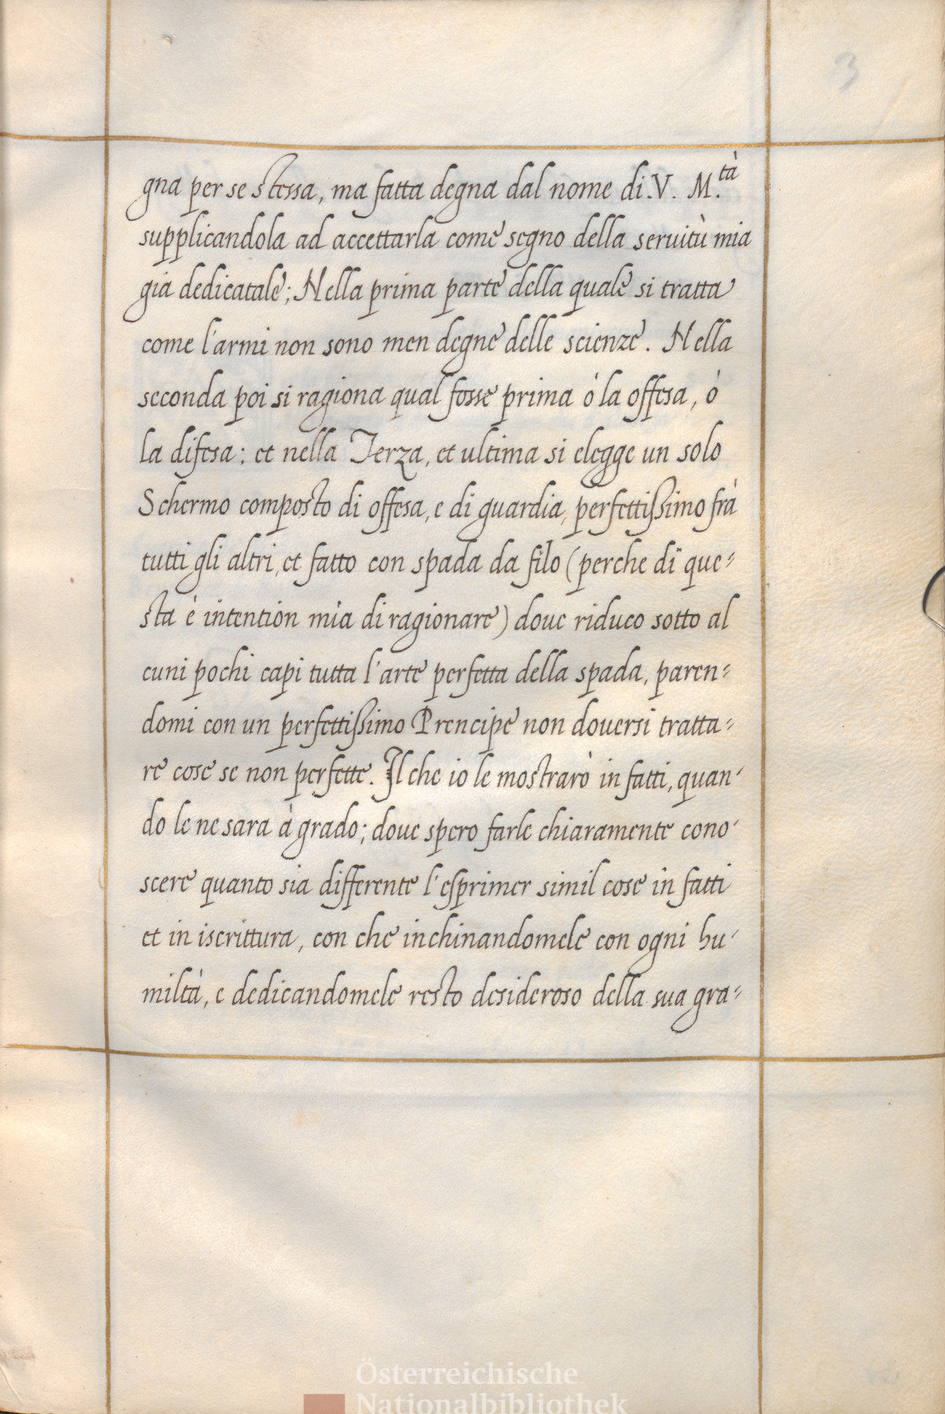 3
gna per se stessa, ma fatta degna dal nome di V. M.tà
supplicandola ad accettarla come segno della seruitù mia
già dedicatale; Nella prima parte della quale si tratta
come l'armi non sono men degne delle scienze. Nella
seconda poi si ragiona qual fosse prima ò la offesa, ò
la difesa: et nella Terza, et ultima si elegge un solo
Schermo composto di offesa, e di guardia, perfettissimo frà
tutti gli altri, et fatto con spada da filo (perche di que=
sta è intention mia di ragionare) doue riduco sotto al
cuni pochi capi tutta l'arte perfetta della spada, paren=
domi con un perfettissimo Prencipe non douersi tratta=
re cose se non perfette. Il che io le mostrarò in fatti, quan-
do le ne sara à grado; doue spero farle chiaramente cono-
scere quanto sia differente l'esprimer simil cose in fatti
et in iscrittura, con che inchinandomele con ogni hu-
miltà, e dedicandomele resto desideroso della sua gra=
Österreichische
Nationalbibliothek